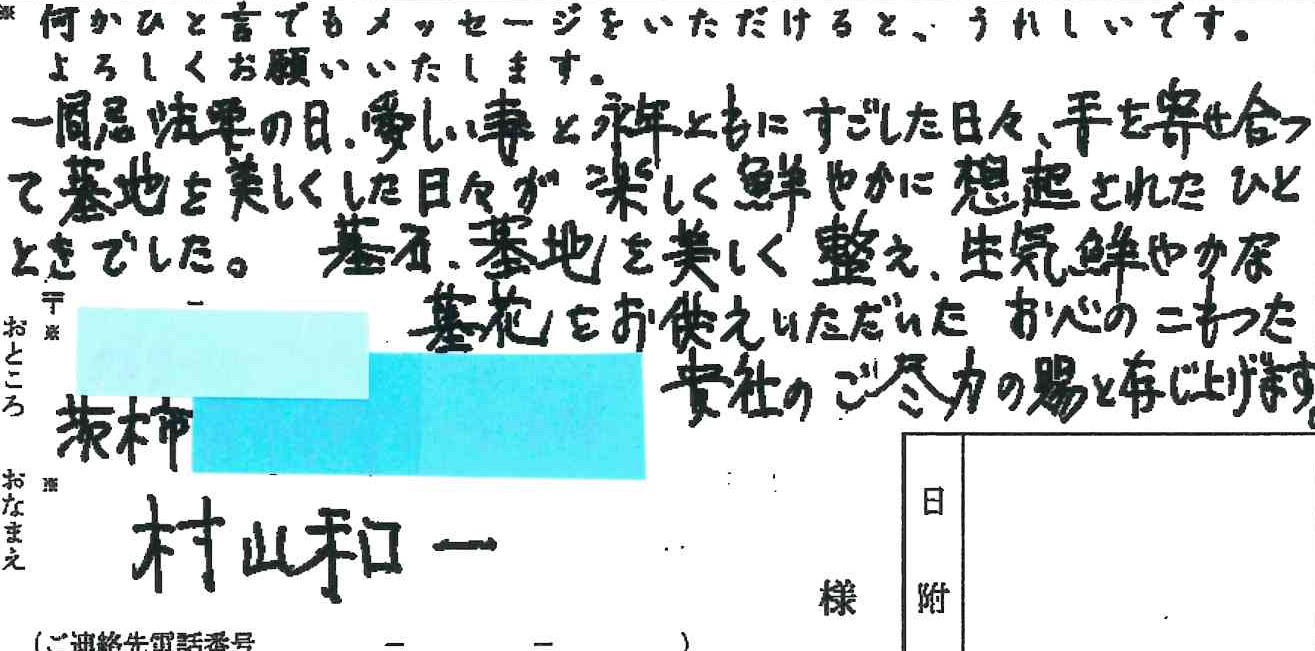 ※ 何かひと言でもメッセージをいただけると、うれしいです。
よろしくお願いいたします。
一周忌法要の日、愛しい妻と永年ともにすごした日々、手を寄せ合っ
て墓地を美しくした日々が楽しく鮮やかに想起されたひと
ときでした。 墓石、墓地を美しく整え、生気鮮やかな
墓花をお供えいただいた お心のこもった
貴社のご尽力の賜と存じ上げます。
〒
※
おところ
茨木市
おなまえ
※
村山和一
様
日附
(ご連絡先電話番号 ー ー )